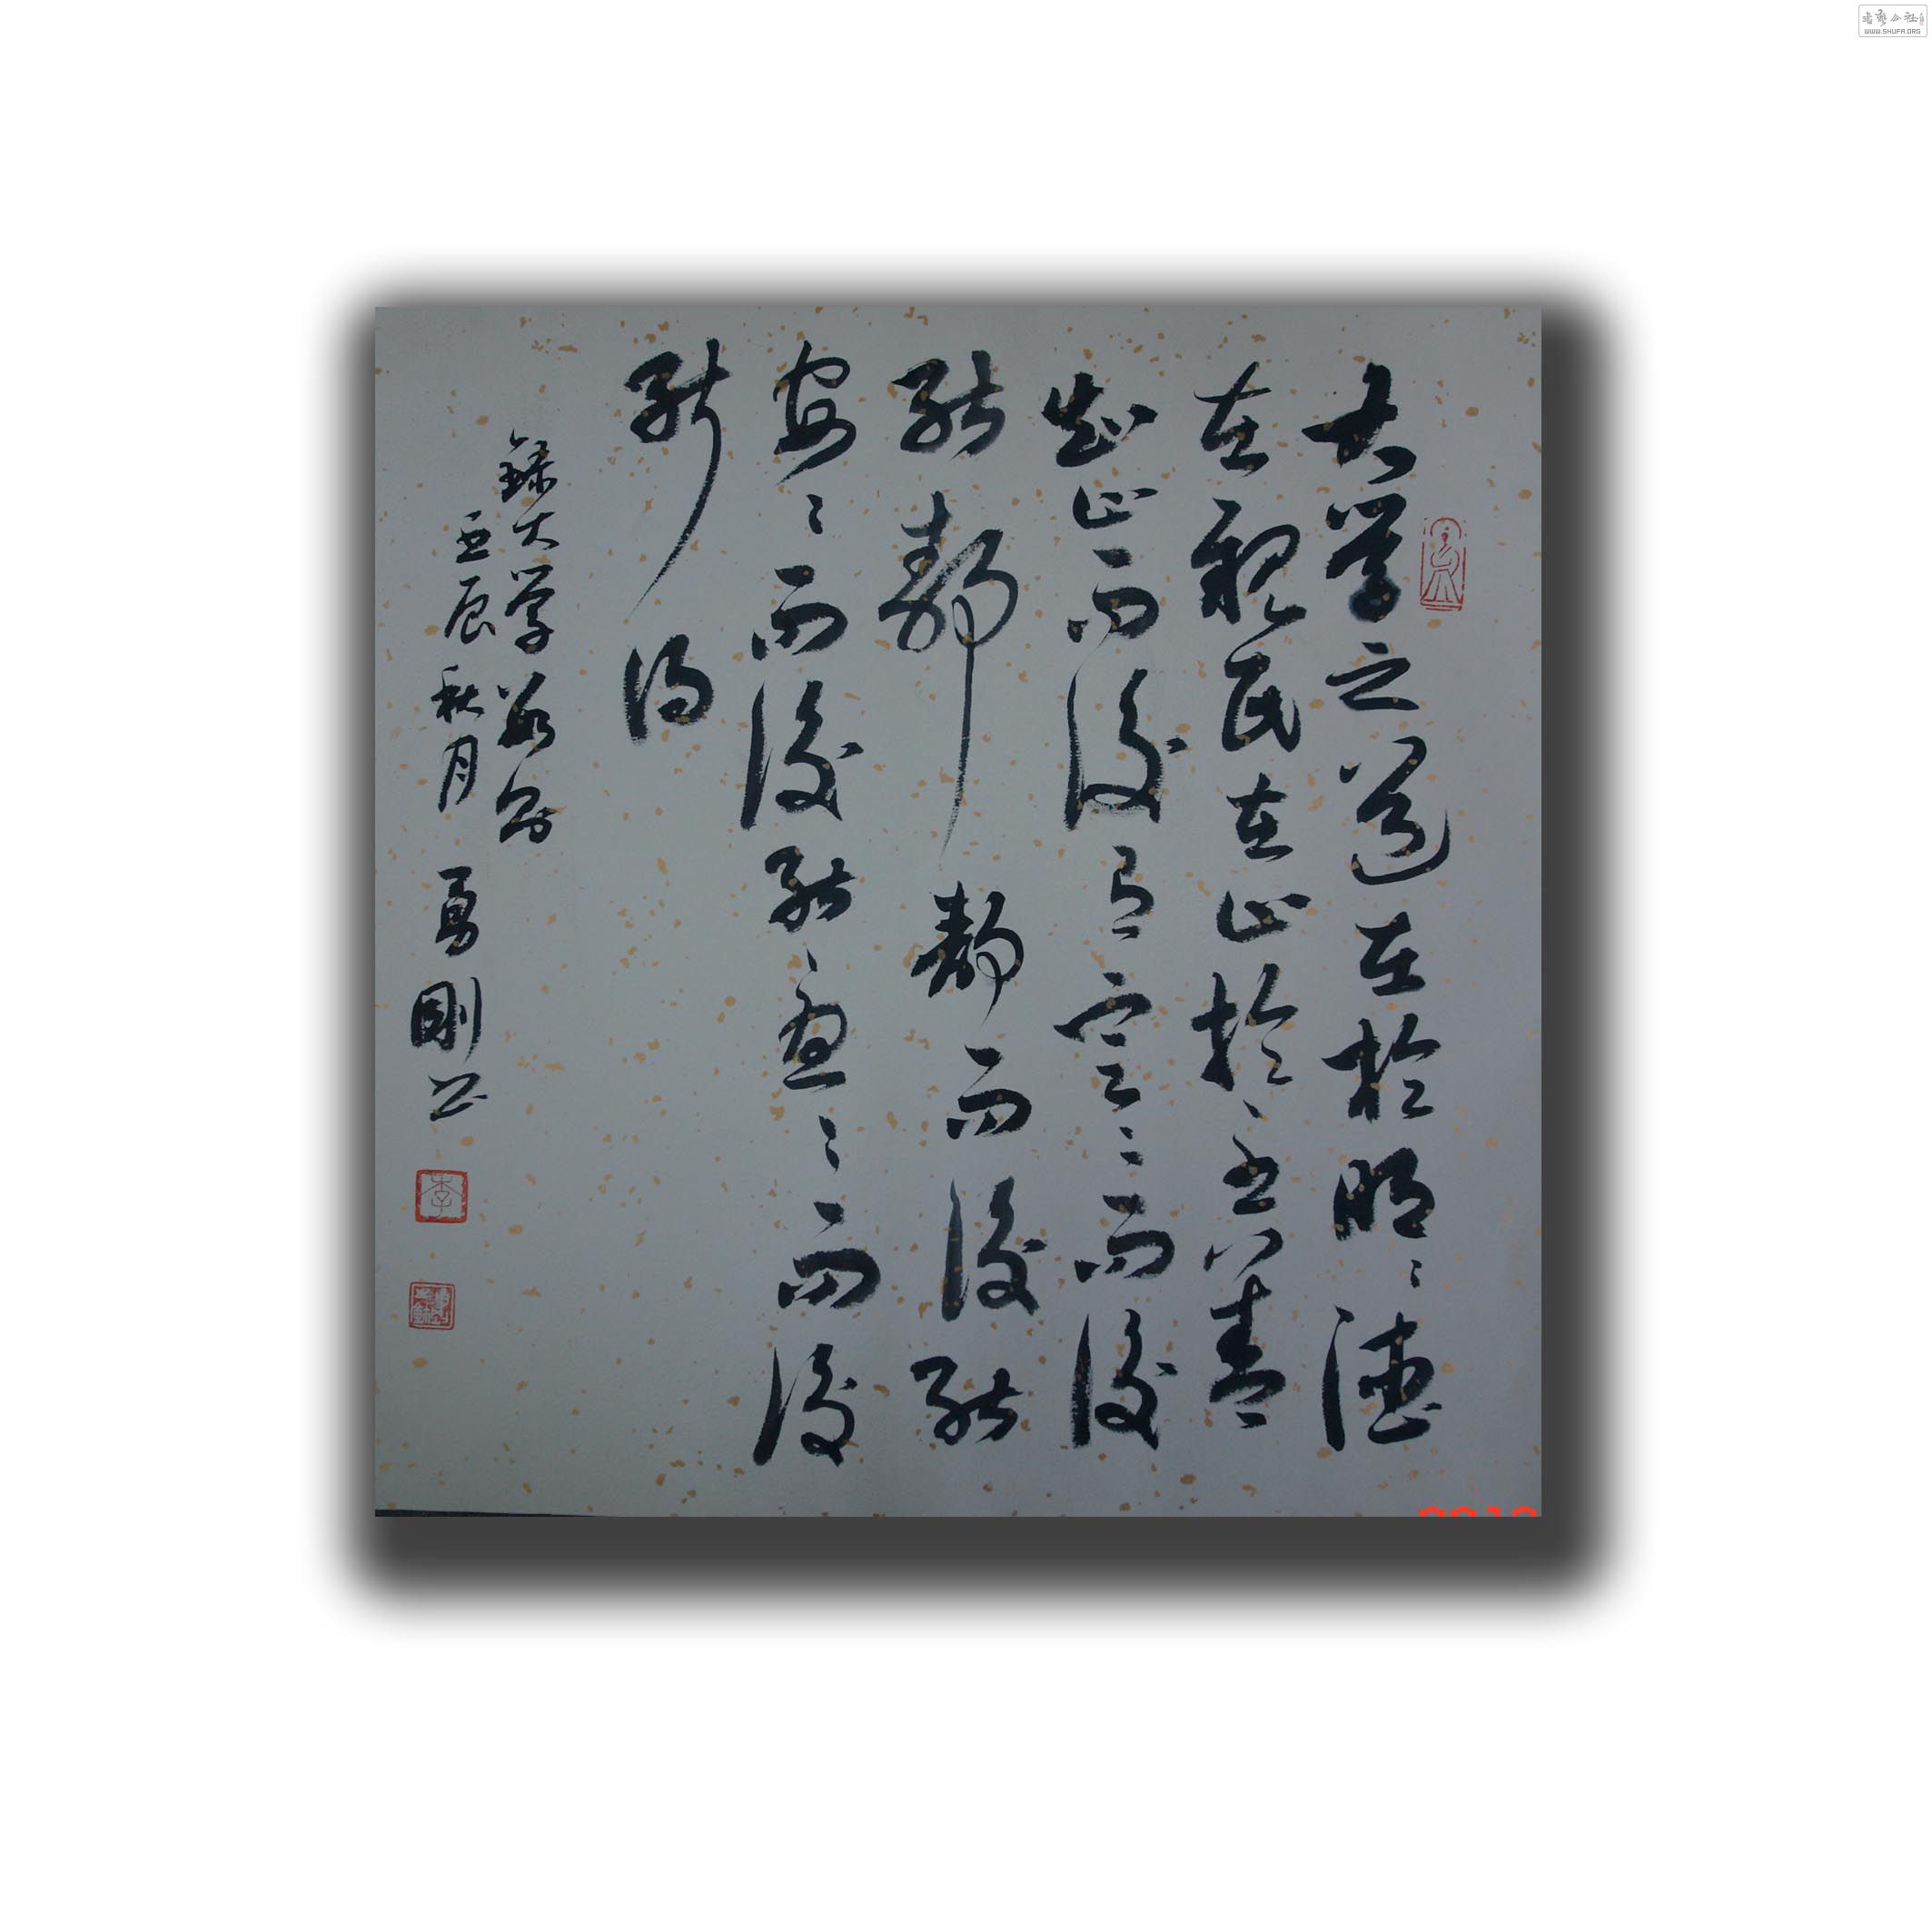 大学之道在於明〻德
在親民在止於至善
知止而後有定〻而後
能靜靜而後能
安〻而後能慮〻而後
能得
錄大学
壬辰秋月 勇剛書
李
WWW.SHUFA.ORG